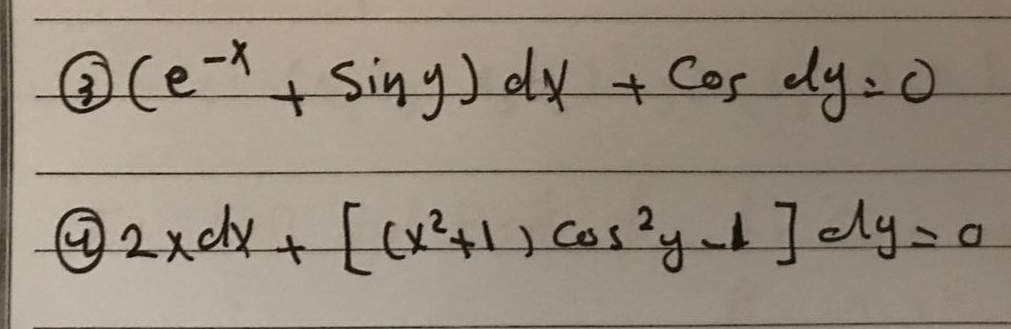 ③ (e⁻ˣ + Sin y) dx + Cos dy = 0
④ 2x dx + [(x²+1) cos²y - 1] dy = 0